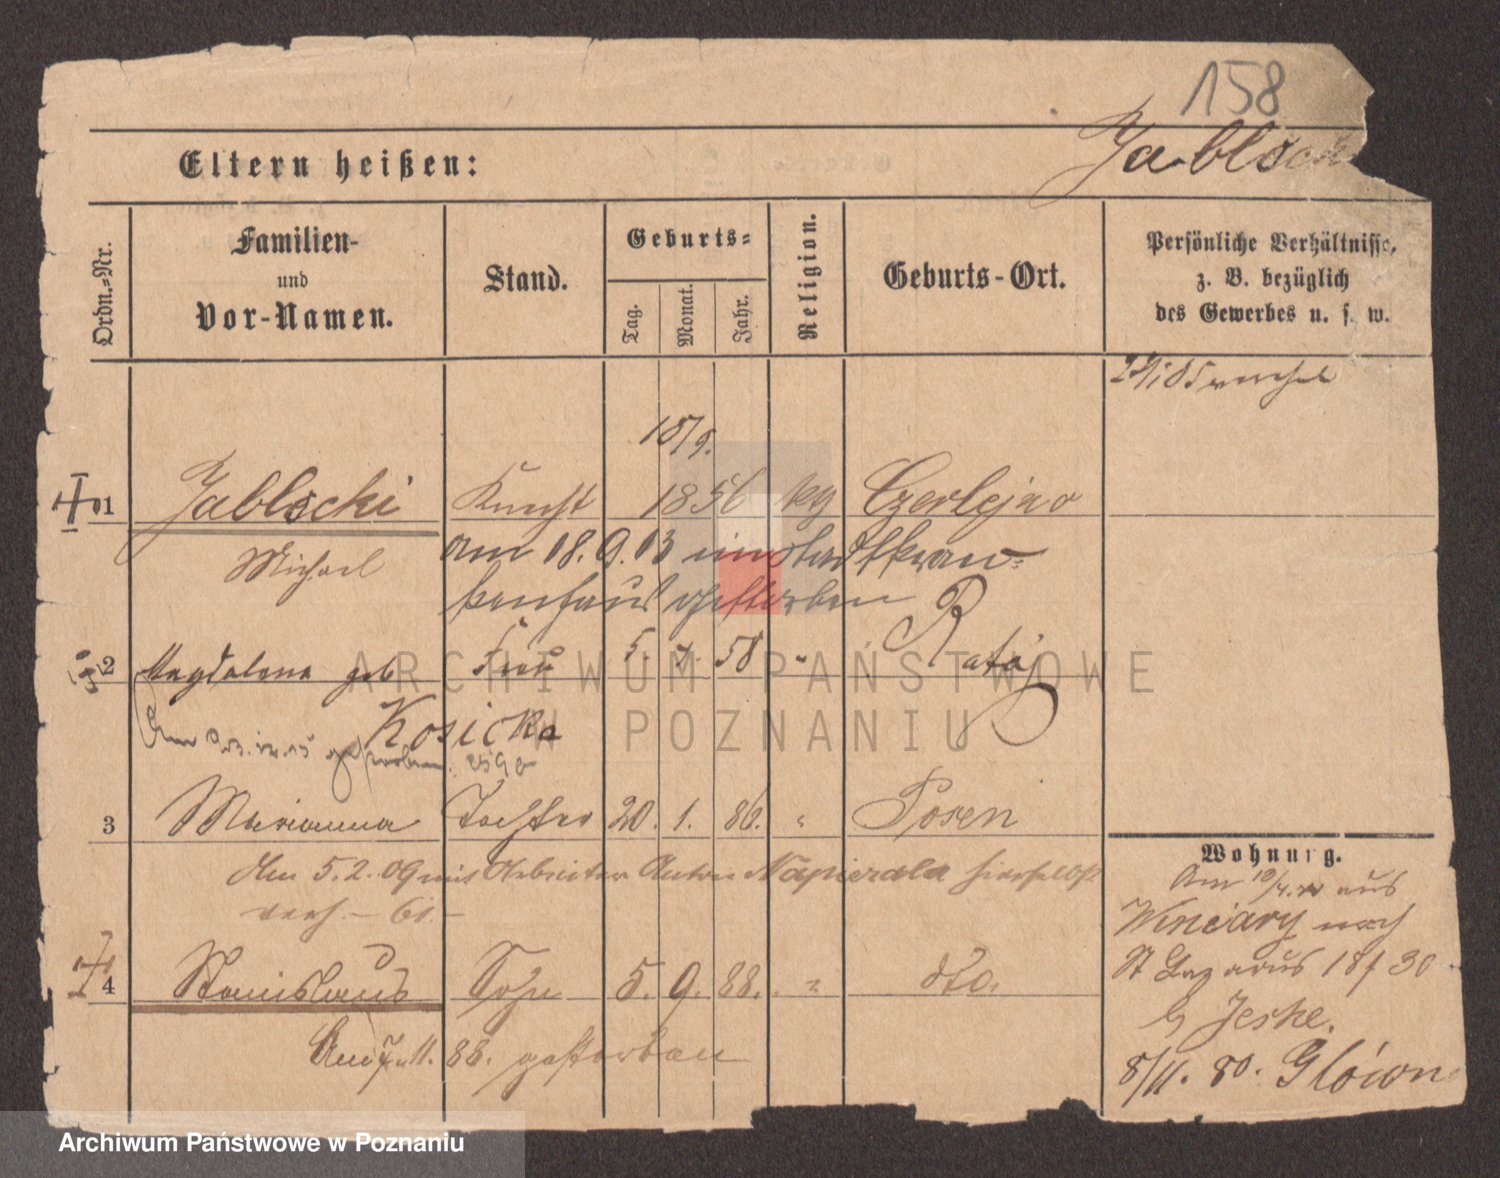 158
Eltern heißen:
Jablock
Ordn.-Nr.
Familien-
und
Vor-Namen.
Stand.
Geburts-
Tag.
Monat.
Jahr.
Religion.
Geburts-Ort.
Persönliche Verhältnisse,
z. B. bezüglich
des Gewerbes u. s. w.
18/9.
1 Jablocki Knecht 1856 kg Czerlejno
Michael
am 18.9.13 im Stadtkran-
kenhaus gestorben
2 Magdalena geb Frau 5. 58 " Rataj
Kosicka
Am 23.12.15 gestorben.
3 Marianna Tochter 20. 1. 86. " Posen
Am 5.2.09 mit Arbeiter Anton Napierala hierselbst
verh. - 61. -
4 Stanislaus Sohn 5. 9. 88. " dto.
Am 7.11. 88. gestorben
Wohnung.
Am aus
Winiary nach
St Lazarus 18f 30
b Jeske.
8/11. 90. Glówn
ARCHIWUM PAŃSTWOWE
W POZNANIU
Archiwum Państwowe w Poznaniu